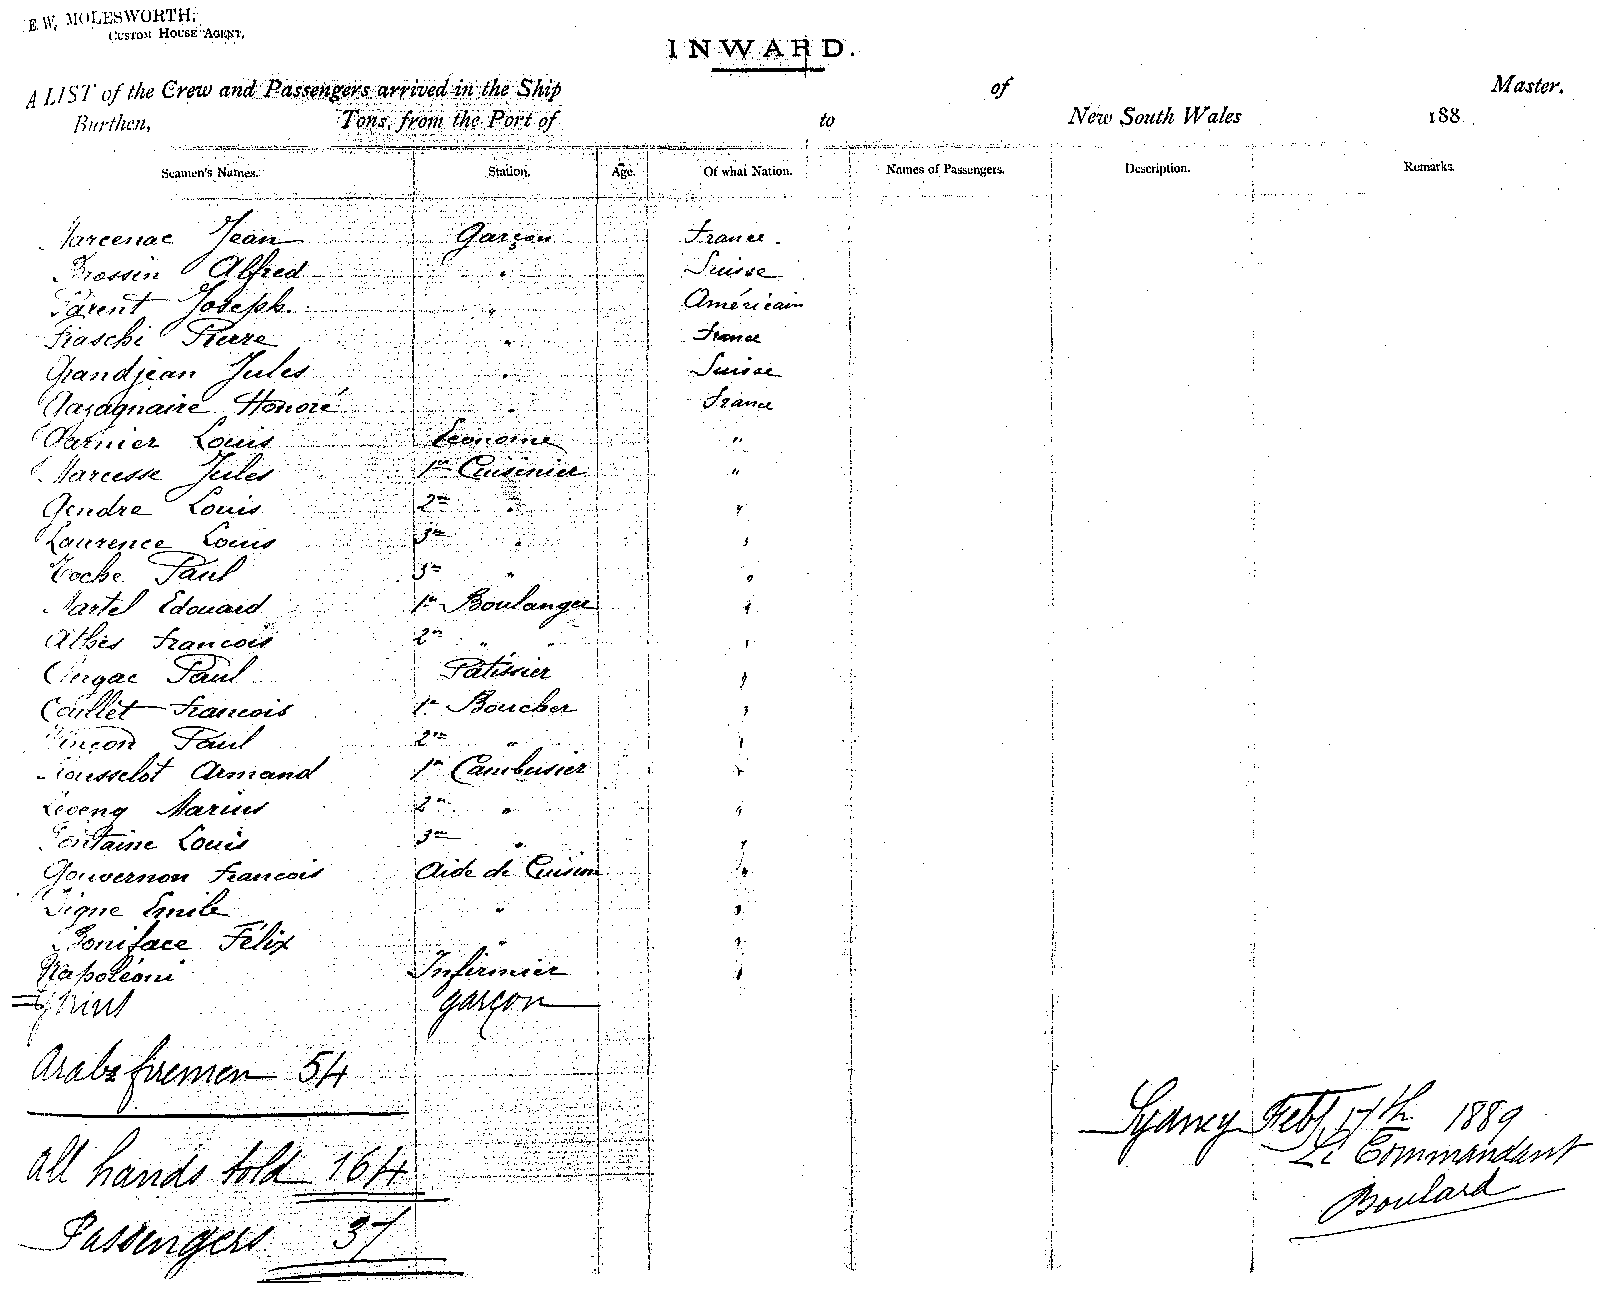 E. W. MOLESWORTH,
CUSTOM HOUSE AGENT,
INWARD.
A LIST of the Crew and Passengers arrived in the Ship of Master.
Burthen, Tons, from the Port of to New South Wales 188
Seamen's Names. Station. Age. Of what Nation. Names of Passengers. Description. Remarks.
Marcenac Jean Garçon France.
Brossin Alfred " Suisse
Parent Joseph. " Américain
Fraschi Pierre " France
Grandjean Jules " Suisse
Cazagnaire Honoré " France
Garnier Louis Econome "
Marcesse Jules 1er Cuisinier "
Gendre Louis 2me " "
Laurence Louis 3me " "
Roche Paul 3me " "
Martel Edouard 1er Boulanger "
Athès Francois 2me " " "
Paul Patissier "
Coullet Francois 1er Boucher "
Vinçon Paul 2me " "
Rousselot Armand 1er Cambusier "
Marius 2me " "
Fontaine Louis 3me " "
Gouvernon Francois Aide de Cuisine "
Signe Emile " "
Boniface Félix " "
Napoléoni Infirmier "
garçon
Arabs firemen 54
all hands told 164
Passengers 37
Sydney Feb/ 17th 1889
Le Commandant
Boulard